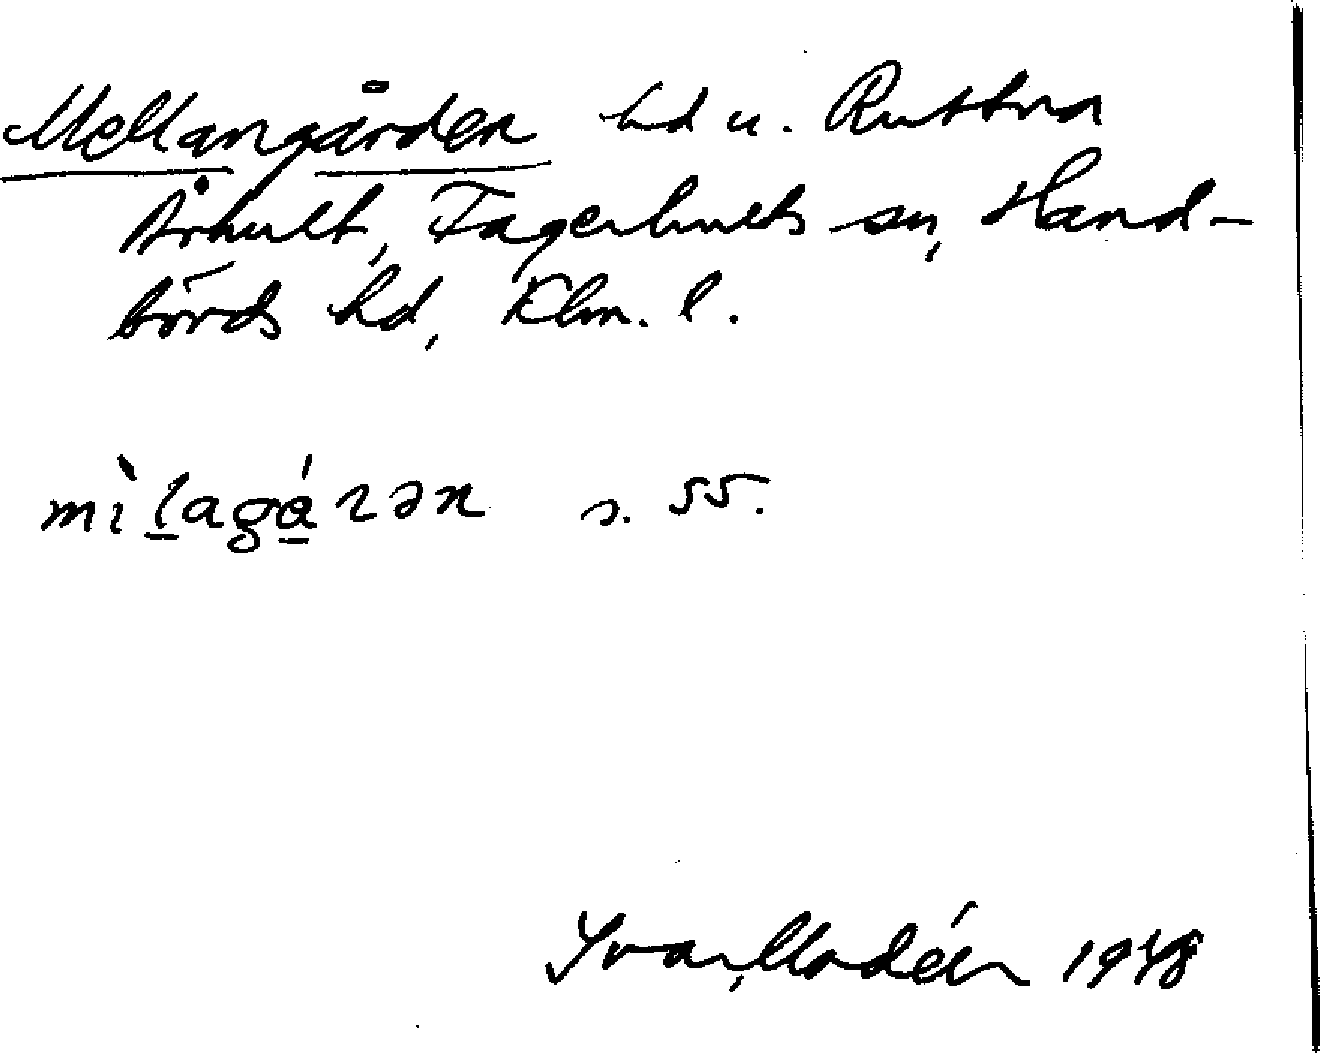 Mellangården hd u. Ruttna
Århult, Fagerhults sn, Hand-
börds hd, Klm. l.
mìlagárən s. 55.
Yvar Modéer 1948